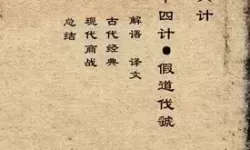 计
十四计●假道伐虢
解语 译文
古代经典
现代商战
总结